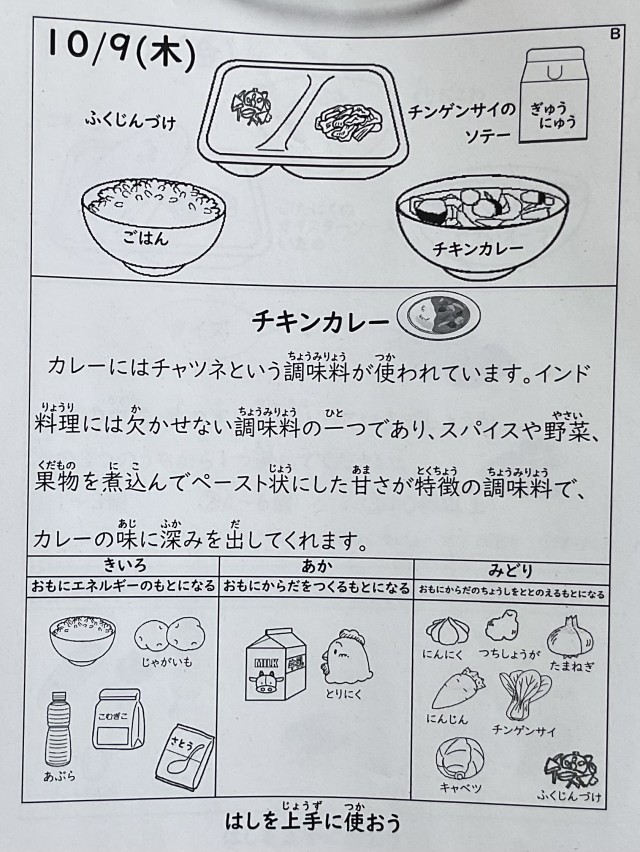 B
10/9(木)
ふくじんづけ
チンゲンサイの
ソテー
ぎゅう
にゅう
ごはん
チキンカレー
チキンカレー
カレーにはチャツネという調味料が使われています。インド
料理には欠かせない調味料の一つであり、スパイスや野菜、
果物を煮込んでペースト状にした甘さが特徴の調味料で、
カレーの味に深みを出してくれます。
きいろ
おもにエネルギーのもとになる
じゃがいも
こむぎこ
さとう
あぶら
あか
おもにからだをつくるもとになる
MILK
とりにく
みどり
おもにからだのちょうしをととのえるもとになる
にんにく
つちしょうが
たまねぎ
にんじん
チンゲンサイ
キャベツ
ふくじんづけ
はしを上手に使おう